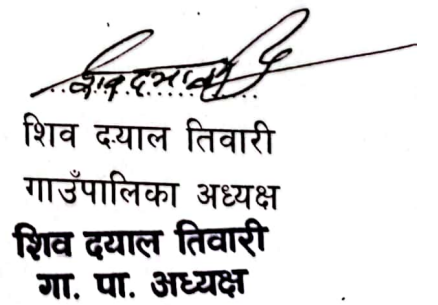 शिव दयाल तिवारी
गाउँपालिका अध्यक्ष
शिव दयाल तिवारी
गा. पा. अध्यक्ष